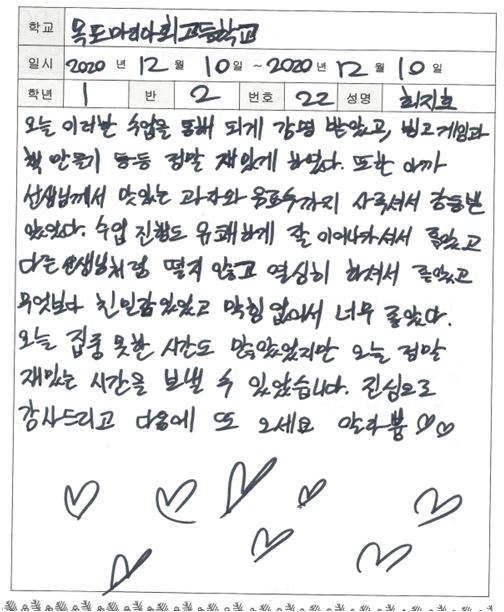 학교 목포마리아회고등학교
일시 2020 년 12 월 10 일 ~ 2020 년 12 월 10 일
학년 1 반 2 번호 22 성명 최지호
오늘 이러한 수업을 통해 되게 감명 받았고, 빙고게임과
책 만들기 등등 정말 재밌게 하였다. 또한 아까
선생님께서 맛있는 과자와 음료수까지 사주셔서 감동받
았었다. 수업 진행도 유쾌하게 잘 이어나가셔서 좋았고
다른 선생님처럼 떨지 않고 열심히 하셔서 좋았고
무엇보다 친밀감있었고 막힘 없어서 너무 좋았다.
오늘 집중 못한 시간도 많았었지만 오늘 정말
재밌는 시간을 보낼 수 있었습니다. 진심으로
감사드리고 다음에 또 오세요 알라븅 ♡♡